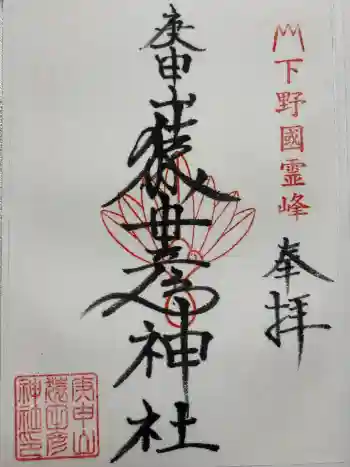 下野國霊峰
奉拝
庚申山
猿田彦神社
庚申山
猿田彦
神社印